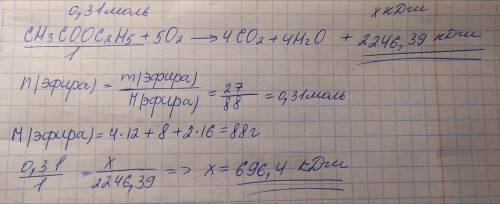 0,31моль х кДж
CH3COOC2H5 + 5O2 → 4CO2 + 4H2O + 2246,39 кДж
1
n(эфира) = m(эфира) / M(эфира) = 27 / 88 = 0,31моль
M(эфира) = 4·12 + 8 + 2·16 = 88г
0,31 / 1 = x / 2246,39 => x = 696,4 кДж